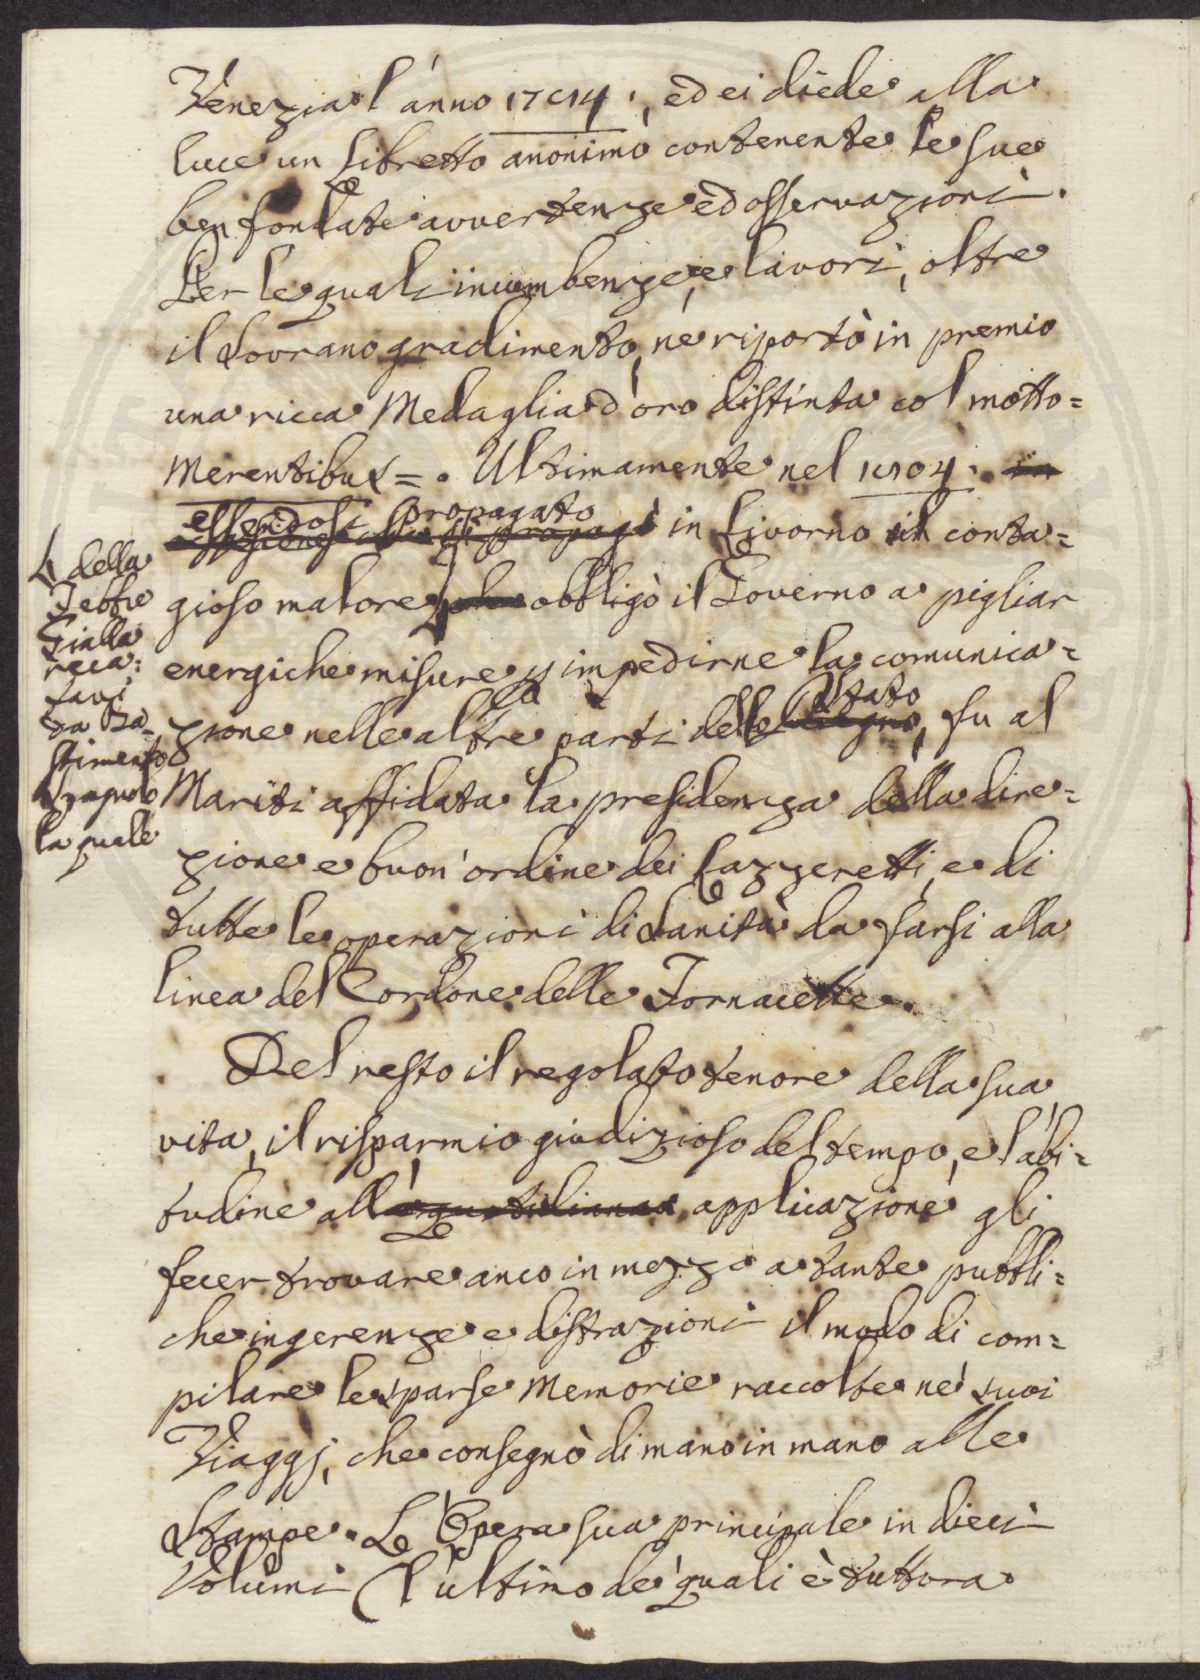 Venezia l'anno 1714., ed ei diede alla
luce un Libretto anonimo contenente le sue
ben fondate avvertenze ed osservazioni.
Per le quali incumbenze, e lavori, oltre
il Sovrano gradimento, ne riportò in premio
una ricca Medaglia d'oro distinta col motto=
Merentibus=. Ultimamente nel 1804. in
essendosi propagato
in Livorno il conta=
gioso malore, che obbligò il Governo a pigliar
energiche misure p impedirne la comunica=
Stato
zione nelle altre parti dello Regno, fu al
Mariti affidata la presidenza della dire=
zione e buon'ordine dei Lazzeretti, e di
tutte le operazioni di Sanità da farsi alla
linea del Cordone delle Fornacette.
della
Febbre
Gialla
reca=
tavi
da Ba=
stimento
Spagnolo
la quale
Del resto il regolato tenore della sua
vita, il risparmio giudizioso del tempo, e l'abi=
tudine all' applicazione gli
fecer trovare anco in mezzo a tante pubbli=
che ingerenze e distrazioni il modo di com=
pilare le sparse Memorie raccolte ne' suoi
Viaggj, che consegnò di mano in mano alle
Stampe. L'Opera sua principale in dieci
Volumi (l'ultimo de' quali è tuttora